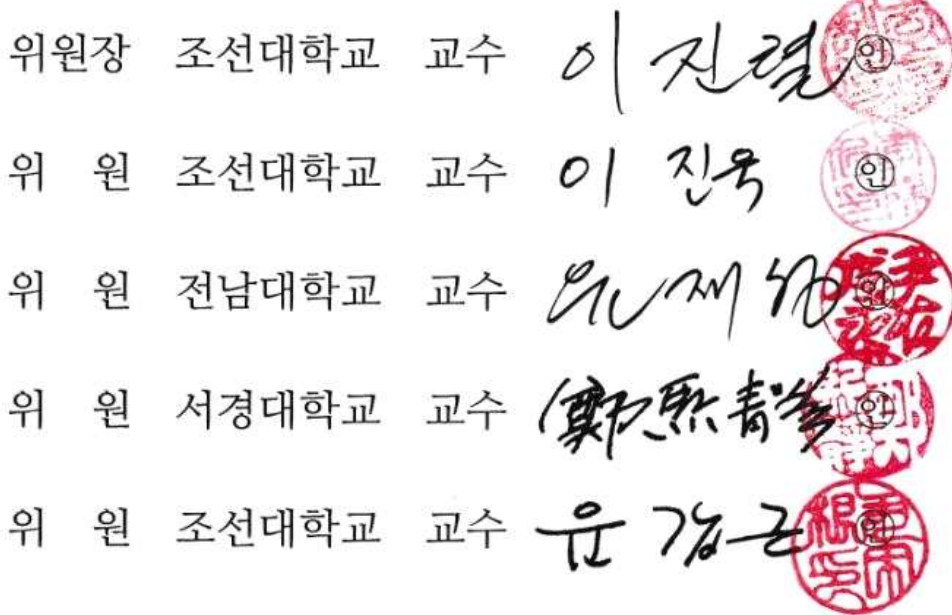 위원장 조선대학교 교수 이 진렬 인
위 원 조선대학교 교수 이 진욱 인
위 원 전남대학교 교수 인
위 원 서경대학교 교수 인
위 원 조선대학교 교수 윤 갑근 인